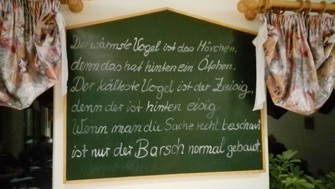 Der wärmste Vogel ist das Mövchen,
denn das hat hinten ein Öfchen.
Der kälteste Vogel ist der Zeisig,
denn der ist hinten eisig.
Wenn man die Sache recht beschaut
ist nur der Barsch normal gebaut.